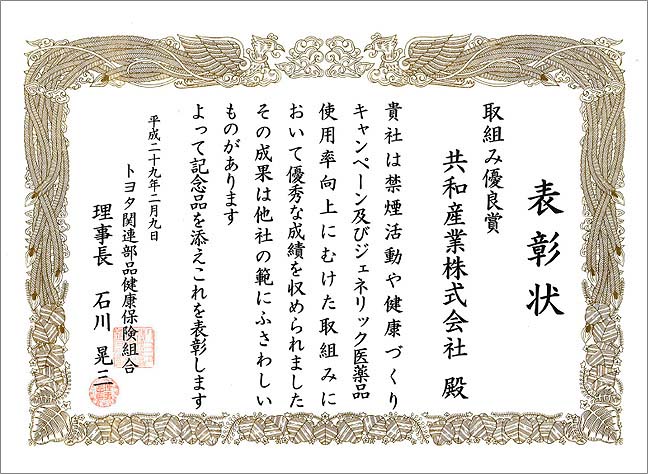 表彰状
取組み優良賞
共和産業株式会社 殿
貴社は禁煙活動や健康づくり
キャンペーン及びジェネリック医薬品
使用率向上にむけた取組みに
おいて優秀な成績を収められました
その成果は他社の範にふさわしい
ものがあります
よって記念品を添えこれを表彰します
平成二十九年二月九日
トヨタ関連部品健康保険組合
理事長 石川 晃三